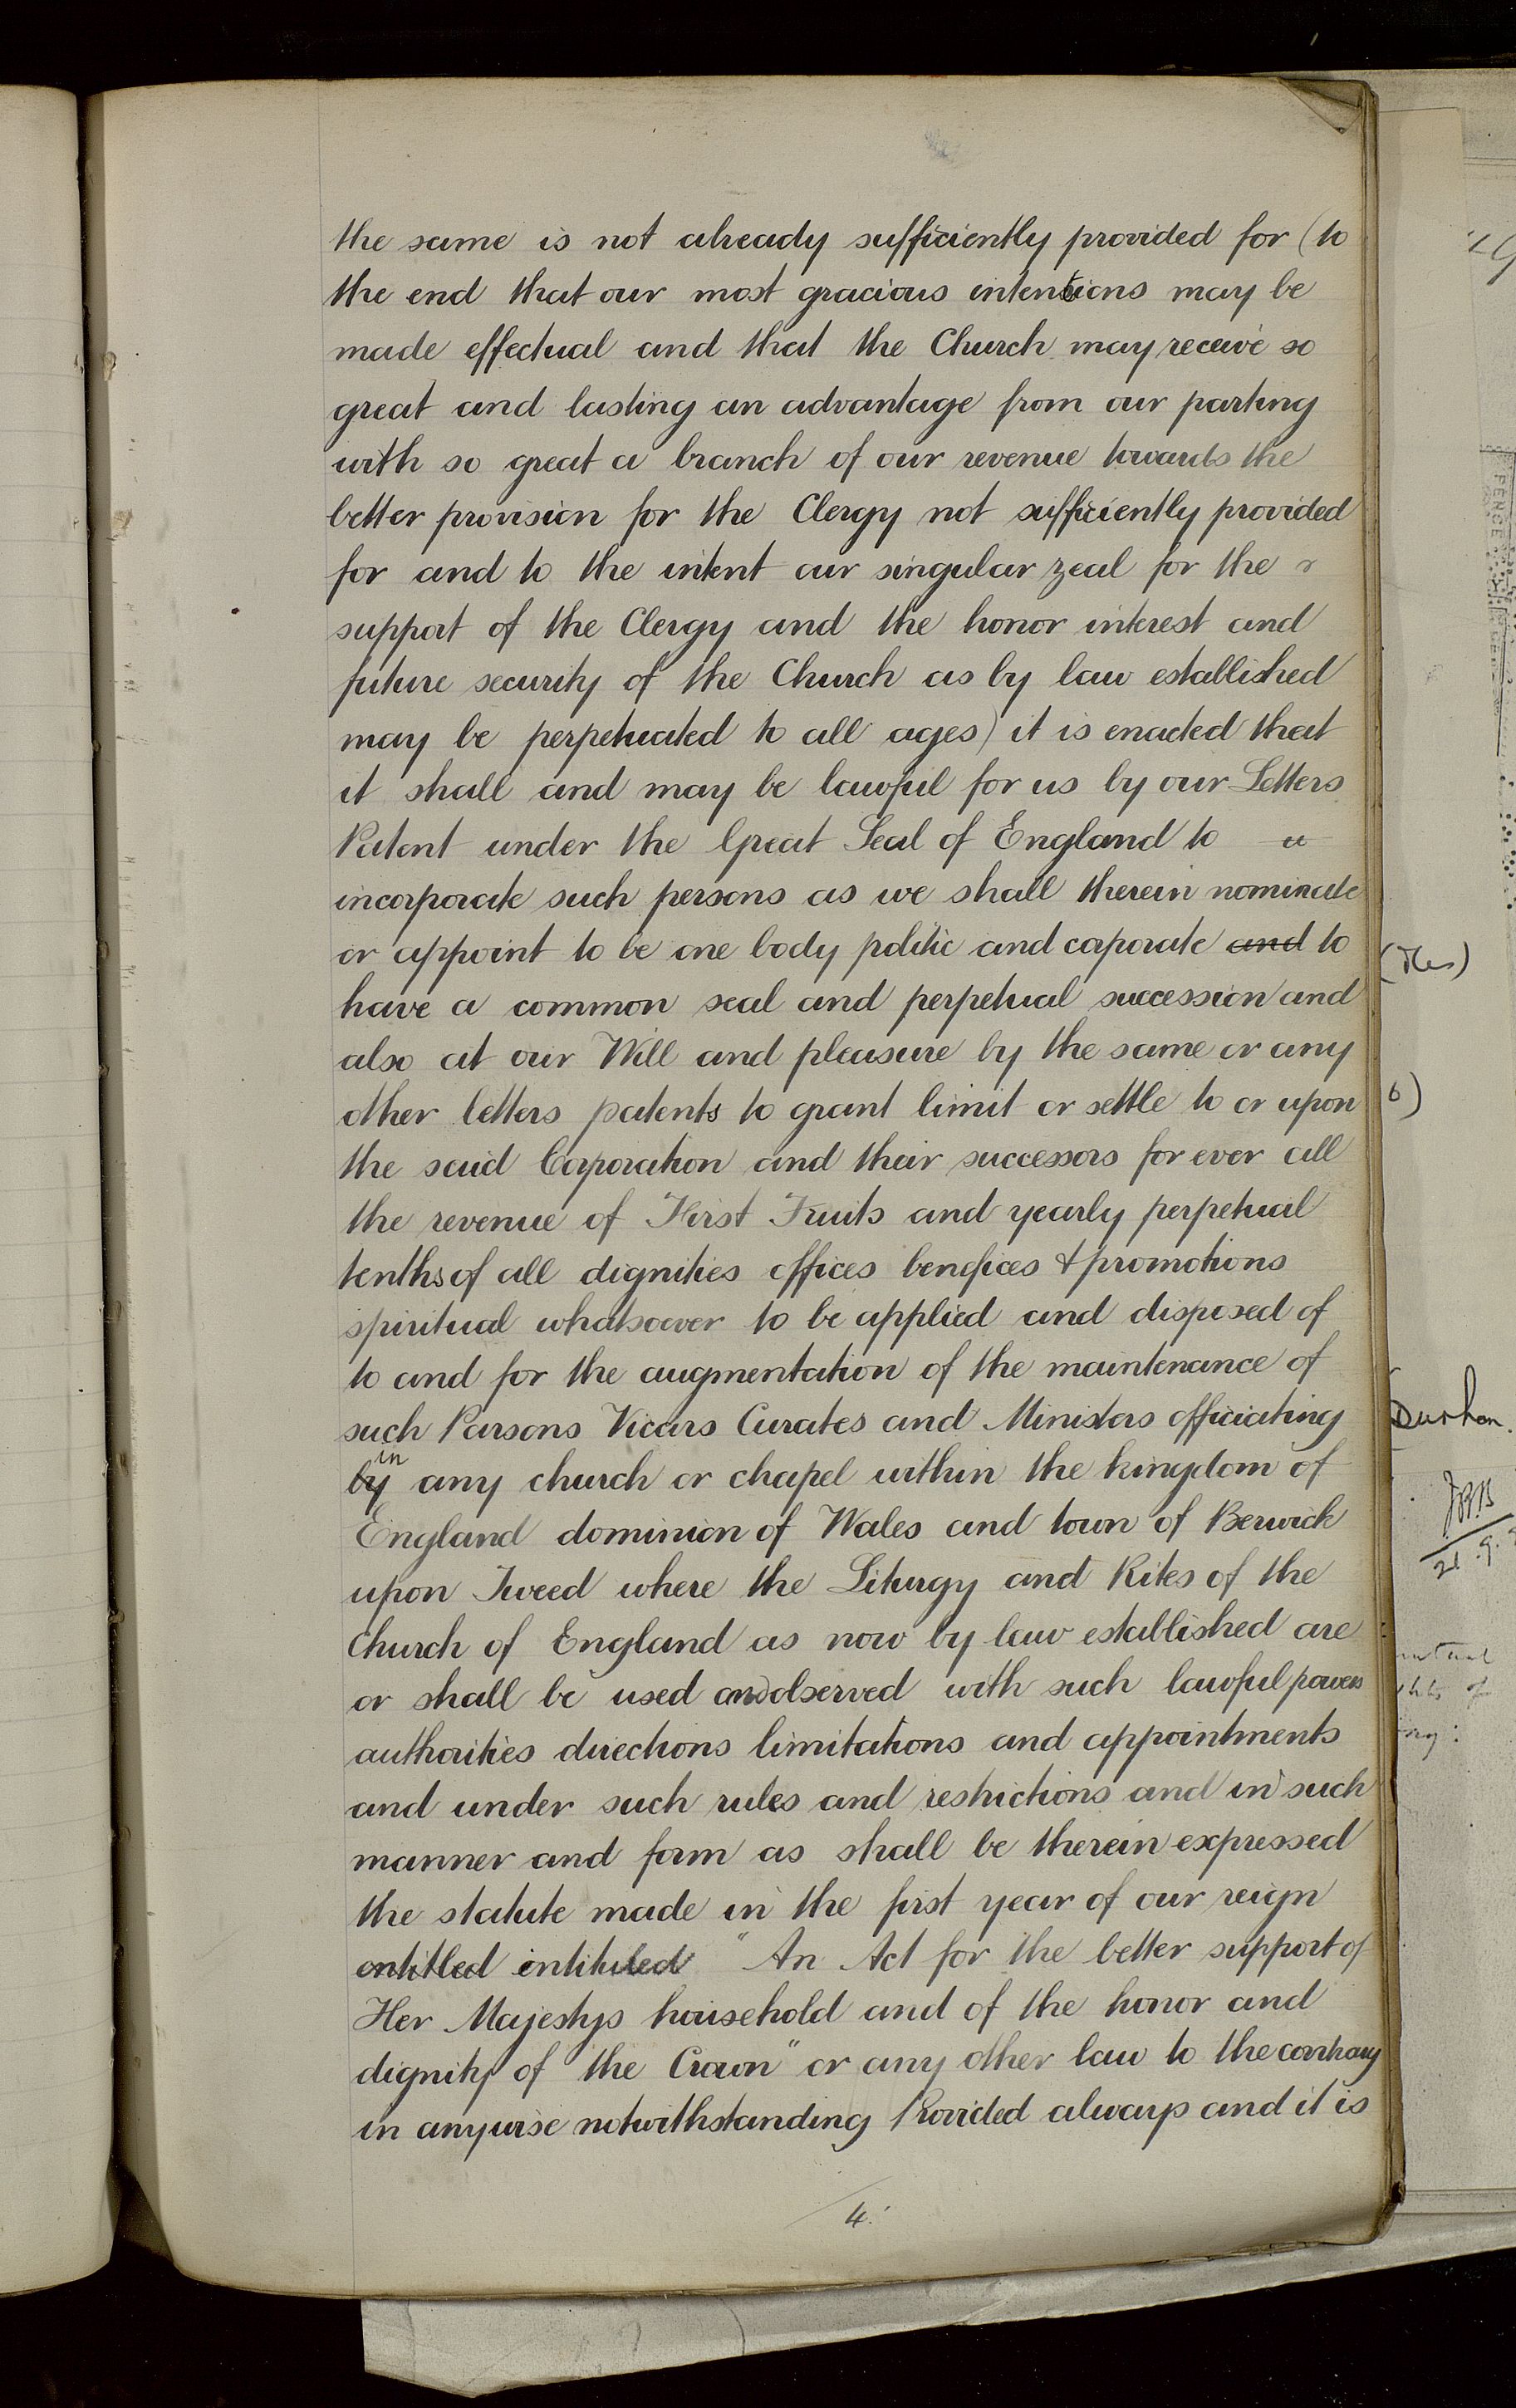 the same is not already sufficiently provided for (to
the end that our most gracious intentions may be
made effectual and that the Church may receive so
great and lasting an advantage from our parting
with so great a branch of our revenue towards the
better provision for the Clergy not sufficiently provided
for and to the intent our singular zeal for the
support of the Clergy and the honor interest and
future security of the Church as by law established
may be perpetuated to all ages) it is enacted that
it shall and may be lawful for us by our Letters
Patent under the Great Seal of England to
incorporate such persons as we shall therein nominate
or appoint to be one body politic and corporate and to
have a common seal and perpetual succession and
also at our Will and pleasure by the same or any
other letters patents to grant limit or settle to or upon
the said Corporation and their successors for ever all
the revenue of First Fruits and yearly perpetual
tenths of all dignities offices benefices & promotions
spiritual whatsoever to be applied and disposed of
to and for the augmentation of the maintenance of
such Parsons Vicars Curates and Ministers officiating
by in any church or chapel within the kingdom of
England dominion of Wales and town of Berwick
upon Tweed where the Liturgy and Rites of the
Church of England as now by law established are
or shall be used and observed with such lawful powers
authorities directions limitations and appointments
and under such rules and restrictions and in such
manner and form as shall be therein expressed
the statute made in the first year of our reign
entitled intituled "An Act for the better support of
Her Majestys household and of the honor and
dignity of the Crown" or any other law to the contrary
in anywise notwithstanding Provided always and it is
4.